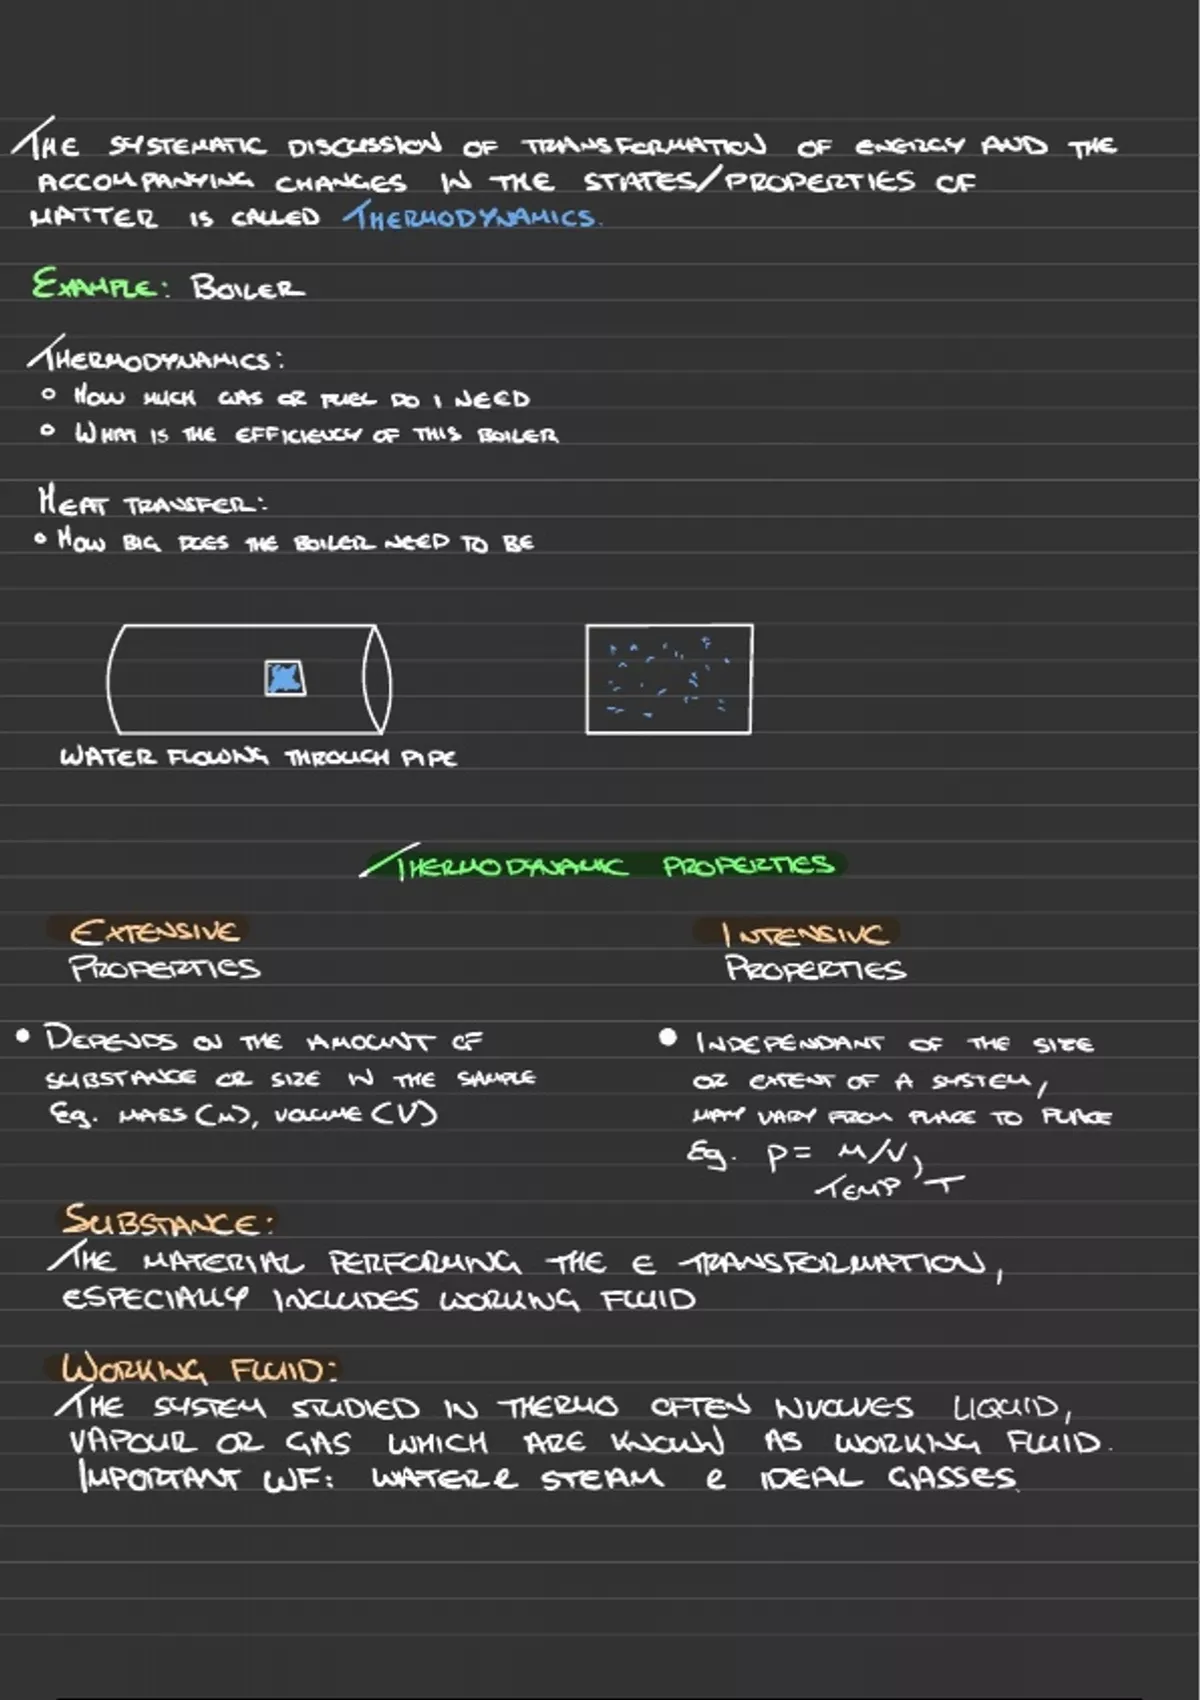 THE SYSTEMATIC DISCUSSION OF TRANSFORMATION OF ENERGY AND THE
ACCOMPANYING CHANGES IN THE STATES/PROPERTIES OF
MATTER IS CALLED THERMODYNAMICS.
EXAMPLE: BOILER
THERMODYNAMICS:
○ HOW MUCH GAS OR FUEL DO I NEED
○ WHAT IS THE EFFICIENCY OF THIS BOILER
HEAT TRANSFER:
○ HOW BIG DOES THE BOILER NEED TO BE
WATER FLOWING THROUGH PIPE
THERMODYNAMIC PROPERTIES
EXTENSIVE
PROPERTIES
• DEPENDS ON THE AMOUNT OF
SUBSTANCE OR SIZE IN THE SAMPLE
Eg. MASS (M), VOLUME (V)
INTENSIVE
PROPERTIES
• INDEPENDANT OF THE SIZE
OR EXTENT OF A SYSTEM,
MAY VARY FROM PLACE TO PLACE
Eg. P = M/V,
TEMP T
SUBSTANCE:
THE MATERIAL PERFORMING THE E TRANSFORMATION,
ESPECIALLY INCLUDES WORKING FLUID
WORKING FLUID:
THE SYSTEM STUDIED IN THERMO OFTEN INVOLVES LIQUID,
VAPOUR OR GAS WHICH ARE KNOWN AS WORKING FLUID.
IMPORTANT WF: WATER & STEAM & IDEAL GASSES.